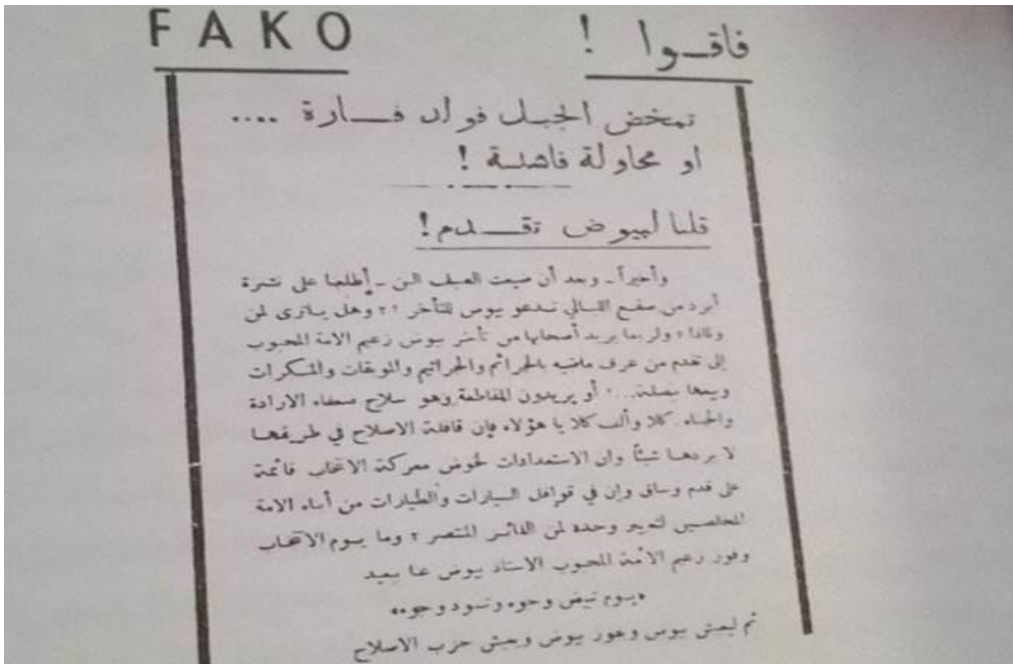 FAKO
فاقــوا !
تمخض الجبـل فولد فــارة ....
او محاولة فاشلـة !
قلنا لبيوض تقـــدم!
وأخيراً ـ وبعد أن ضيعت الصيف اللبن ـ أطلعنا على نشرة
أبرد من صقيع الليالي تـدعو بيوض للتأخر ؟؟ وهل ياترى لمن
ولماذا؟ ولربما يريد أصحابها من تأخر بيوض زعيم الامة المحبوب
إلى تقدم من عرف ماضيه بالجرائم والجراثيم والموبقات والمسكرات
وبيعها بصلة...؟ أو يريدون المقاطعة وهو سلاح ضعفاء الارادة
والجبناء كلا وألف كلا يا هؤلاء فإن قافلة الاصلاح في طريقهـا
لا يردهـا شيئاً وان الاستعدادات لخوض معركة الانتخاب قائمة
على قدم وساق وإن في قوافل السيارات والطيارات من أبناء الامة
المخلصين لتعبير وحده لمن الفائـز المنتصر ؟ وما يـوم الانتخاب
وفوز زعيم الأمة المحبوب الاستاذ بيوض عنا ببعيد
«يـوم تبيض وجوه وتسود وجوه»
ثم ليعش بيوض وفوز بيوض ويعش حزب الاصلاح